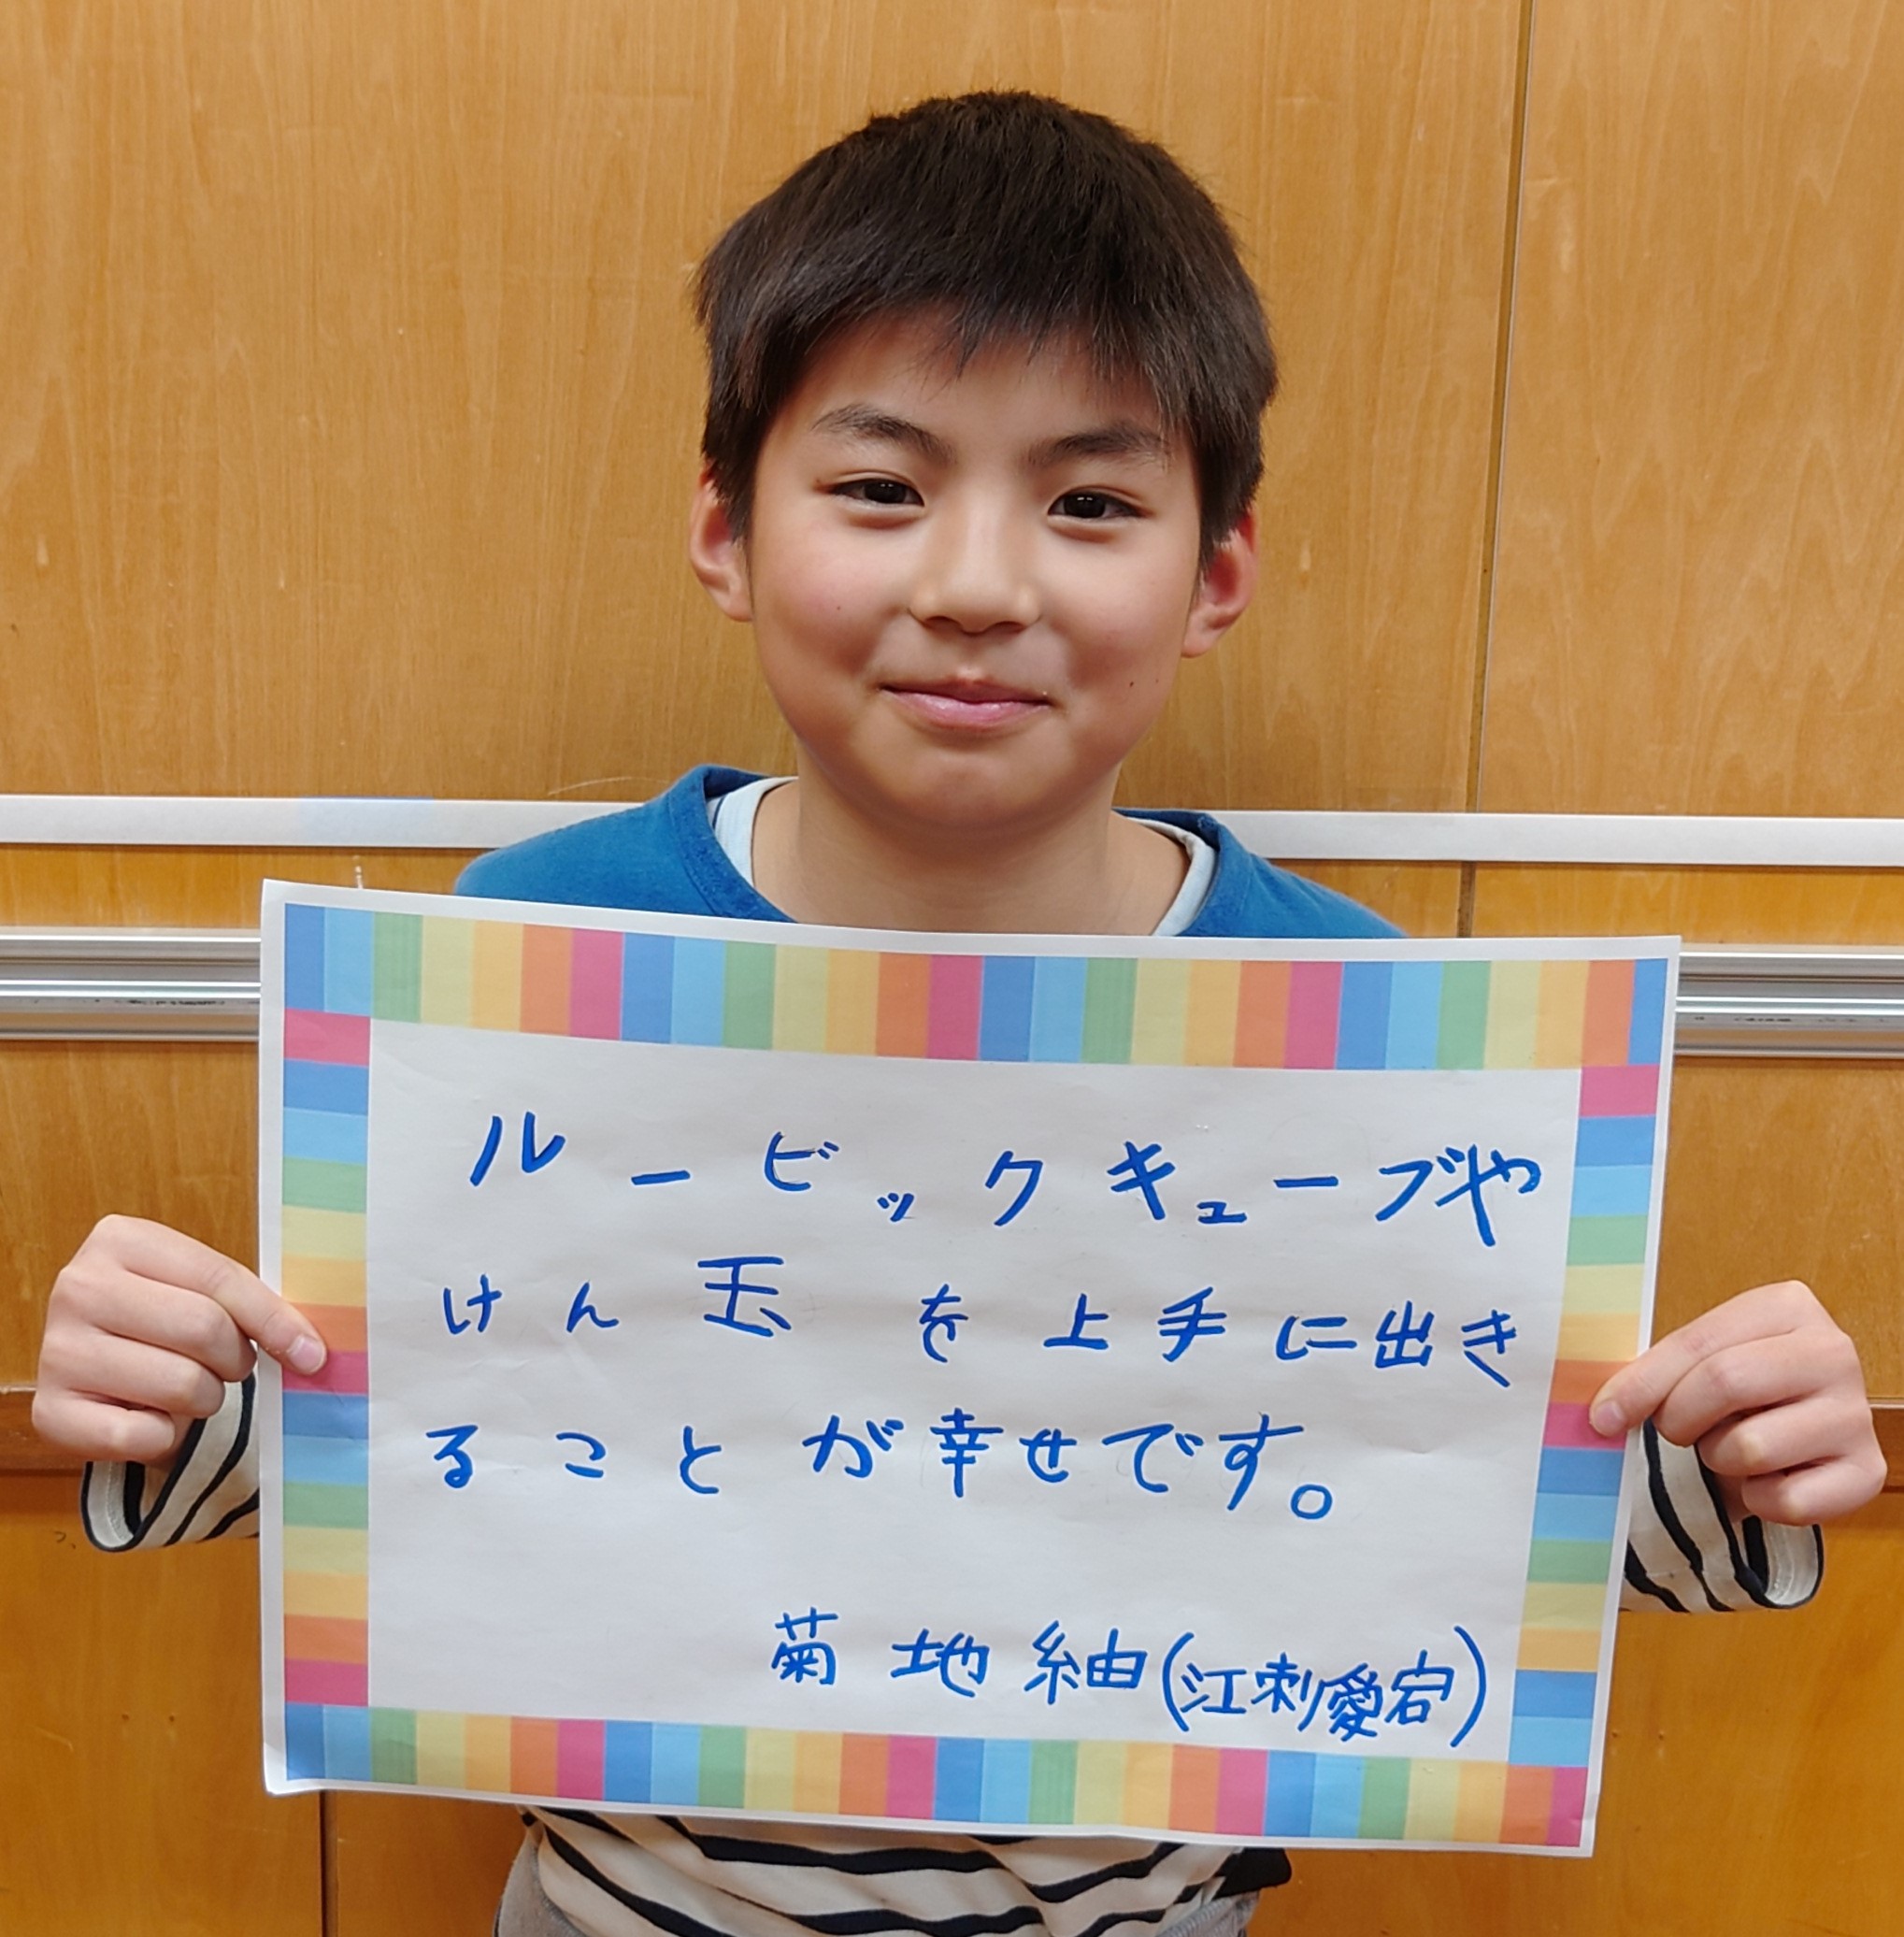 ルービックキューブや
けん玉を上手に出き
ることが幸せです。
菊地紬(江刺愛宕)